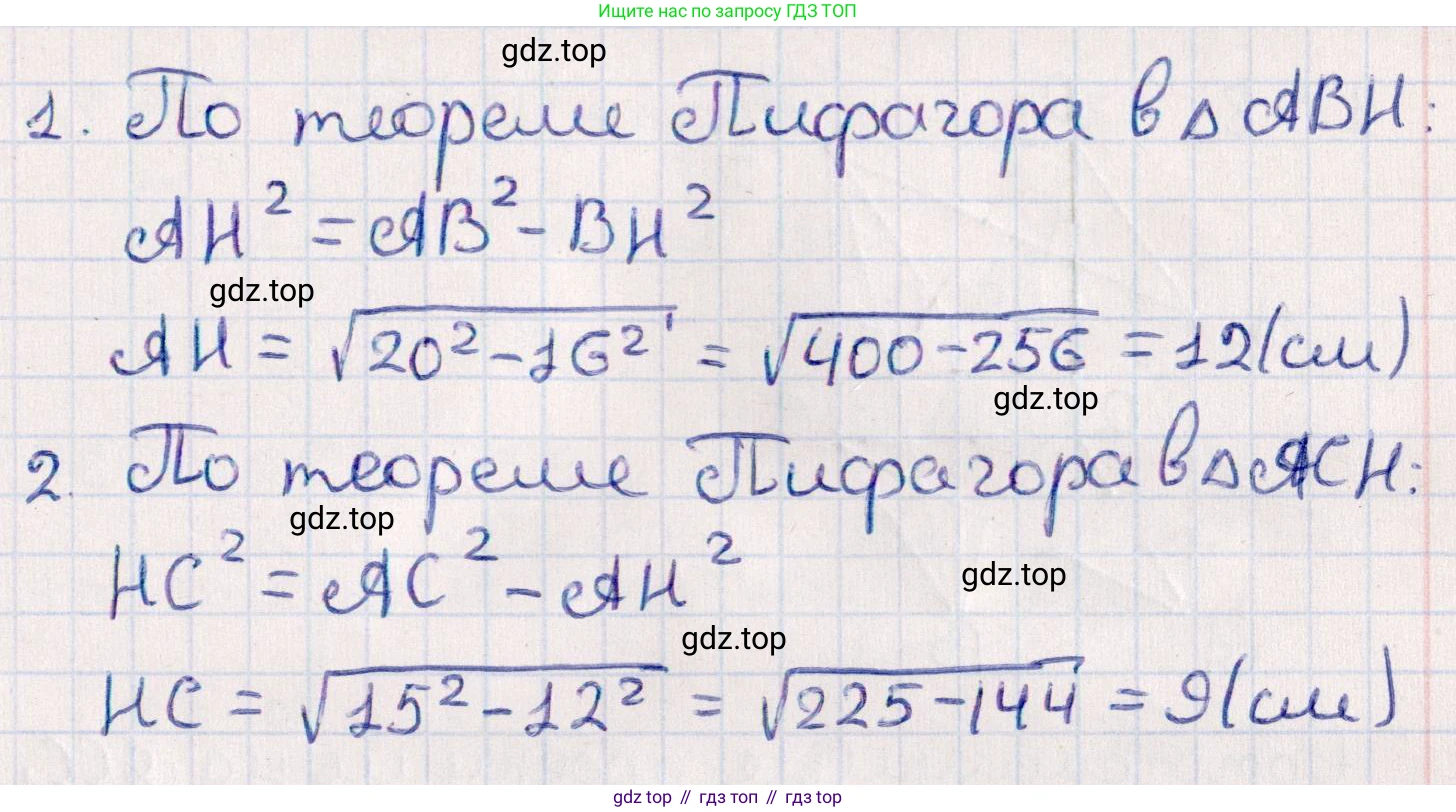 Ищите нас по запросу ГДЗ ТОП
gdz.top
1. По теореме Пифагора в △ABH:
AH² = AB² - BH²
gdz.top
AH = √20² - 16² = √400 - 256 = 12(см)
gdz.top
2. По теореме Пифагора в △ACH:
gdz.top
HC² = AC² - AH²
gdz.top
gdz.top
HC = √15² - 12² = √225 - 144 = 9(см)
gdz top // гдз топ // гдз top